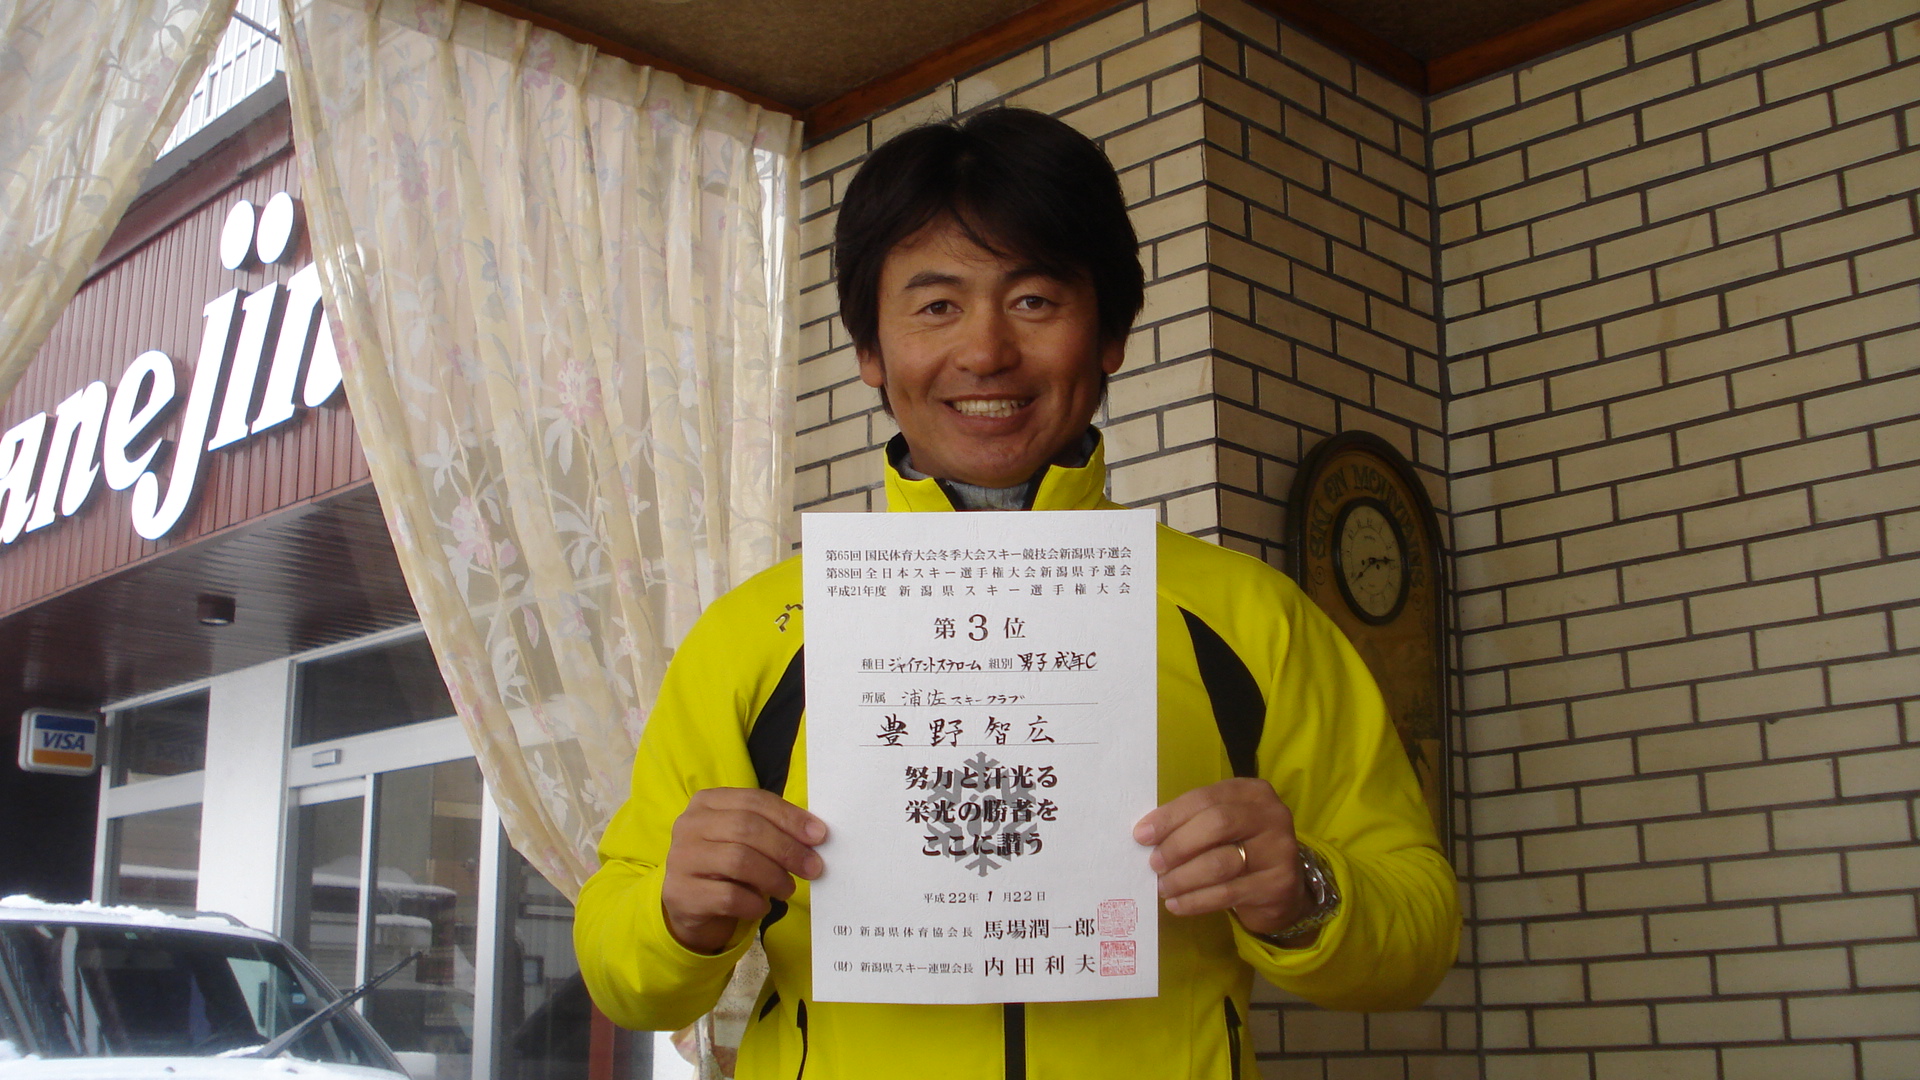 anejin
VISA
SKI ON MOUNTAINS
第65回 国民体育大会冬季大会スキー競技会新潟県予選会
第88回 全日本スキー選手権大会新潟県予選会
平成21年度 新潟県スキー選手権大会
第 3 位
種目 ジャイアントスラローム 組別 男子成年C
所属 浦佐スキークラブ
豊野 智広
努力と汗光る
栄光の勝者を
ここに讃う
平成22年 1 月22日
(財) 新潟県体育協会長 馬場潤一郎
(財) 新潟県スキー連盟会長 内田利夫